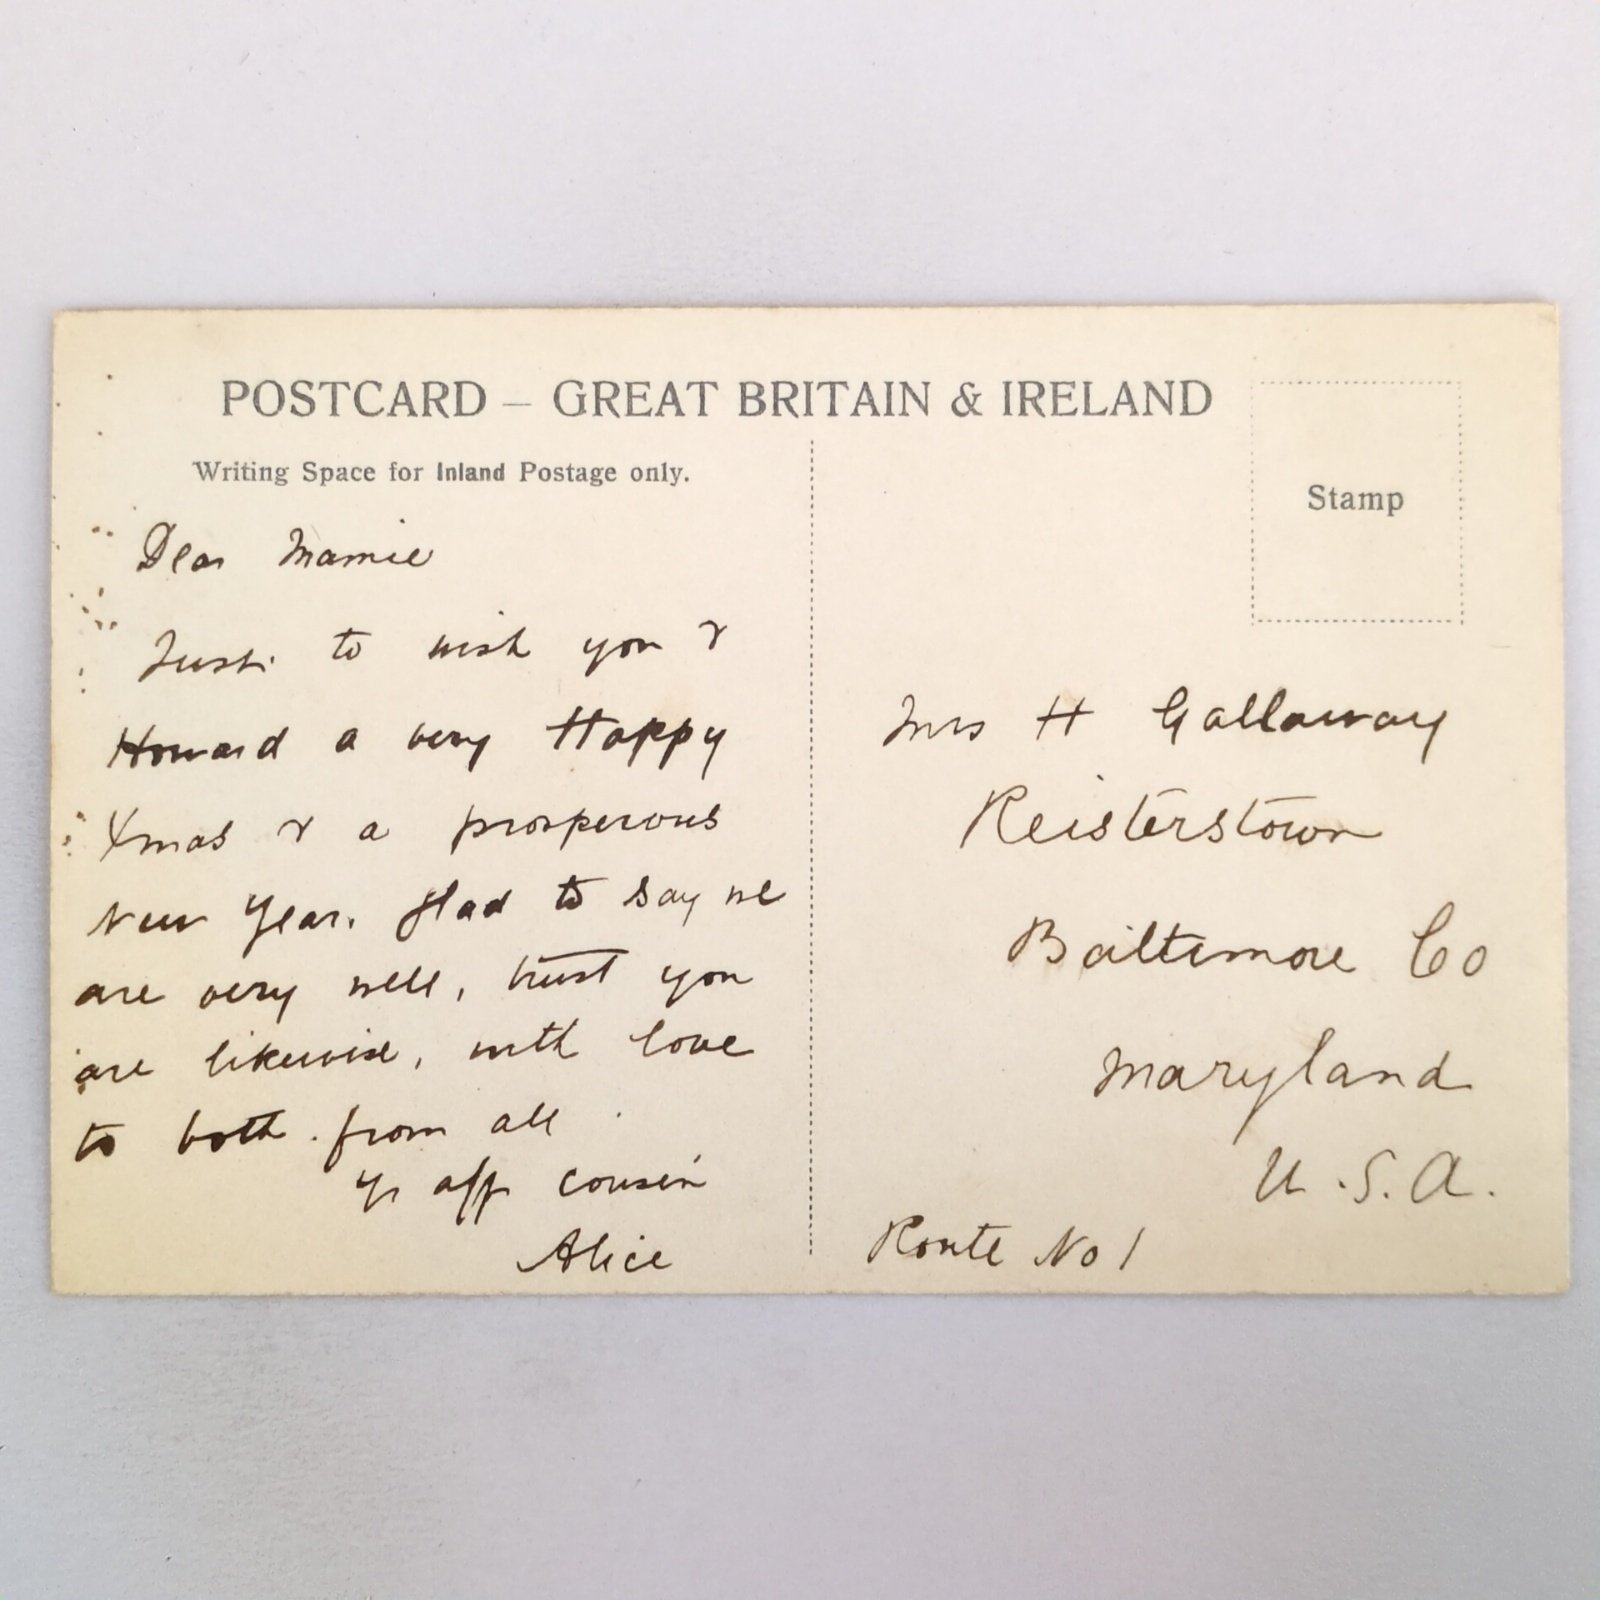 POSTCARD – GREAT BRITAIN & IRELAND
Writing Space for Inland Postage only.
Stamp
Dear Mamie
Just to wish you &
Howard a very Happy
Xmas & a prosperous
New Year. Glad to say we
are very well, trust you
are likewise, with love
to both from all
yr aff cousin
Alice
Mrs H Gallaway
Reisterstown
Baltimore Co
Maryland
U.S.A.
Route No 1